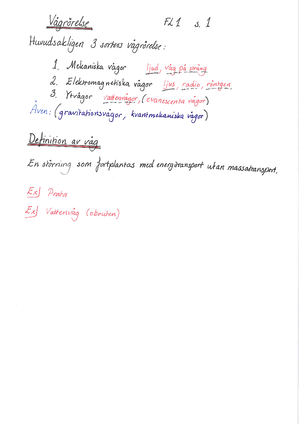 Vågrörelse FL1 s. 1
Huvudsakligen 3 sorters vågrörelse:
1. Mekaniska vågor ljud, våg på sträng
2. Elektromagnetiska vågor ljus, radio, röntgen
3. Ytvågor vattenvågor, (evanescenta vågor)
Även: (gravitationsvågor, kvantmekaniska vågor)
Definition av våg
En störning som fortplantas med energitransport utan masstransport.
Ex) Prata
Ex) Vattenvåg (obruten)